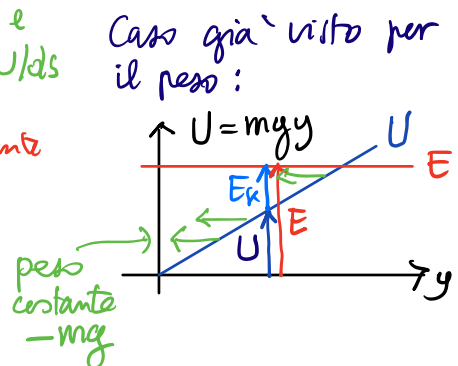 e
U/ds
nte
Caso già visto per
il peso:
U = mgy
U
E
Ek
E
U
y
peso
costante
- mg